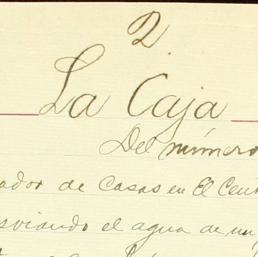 2
La Caja
Del número
ador de casas en El Cen
sviando el agua de un